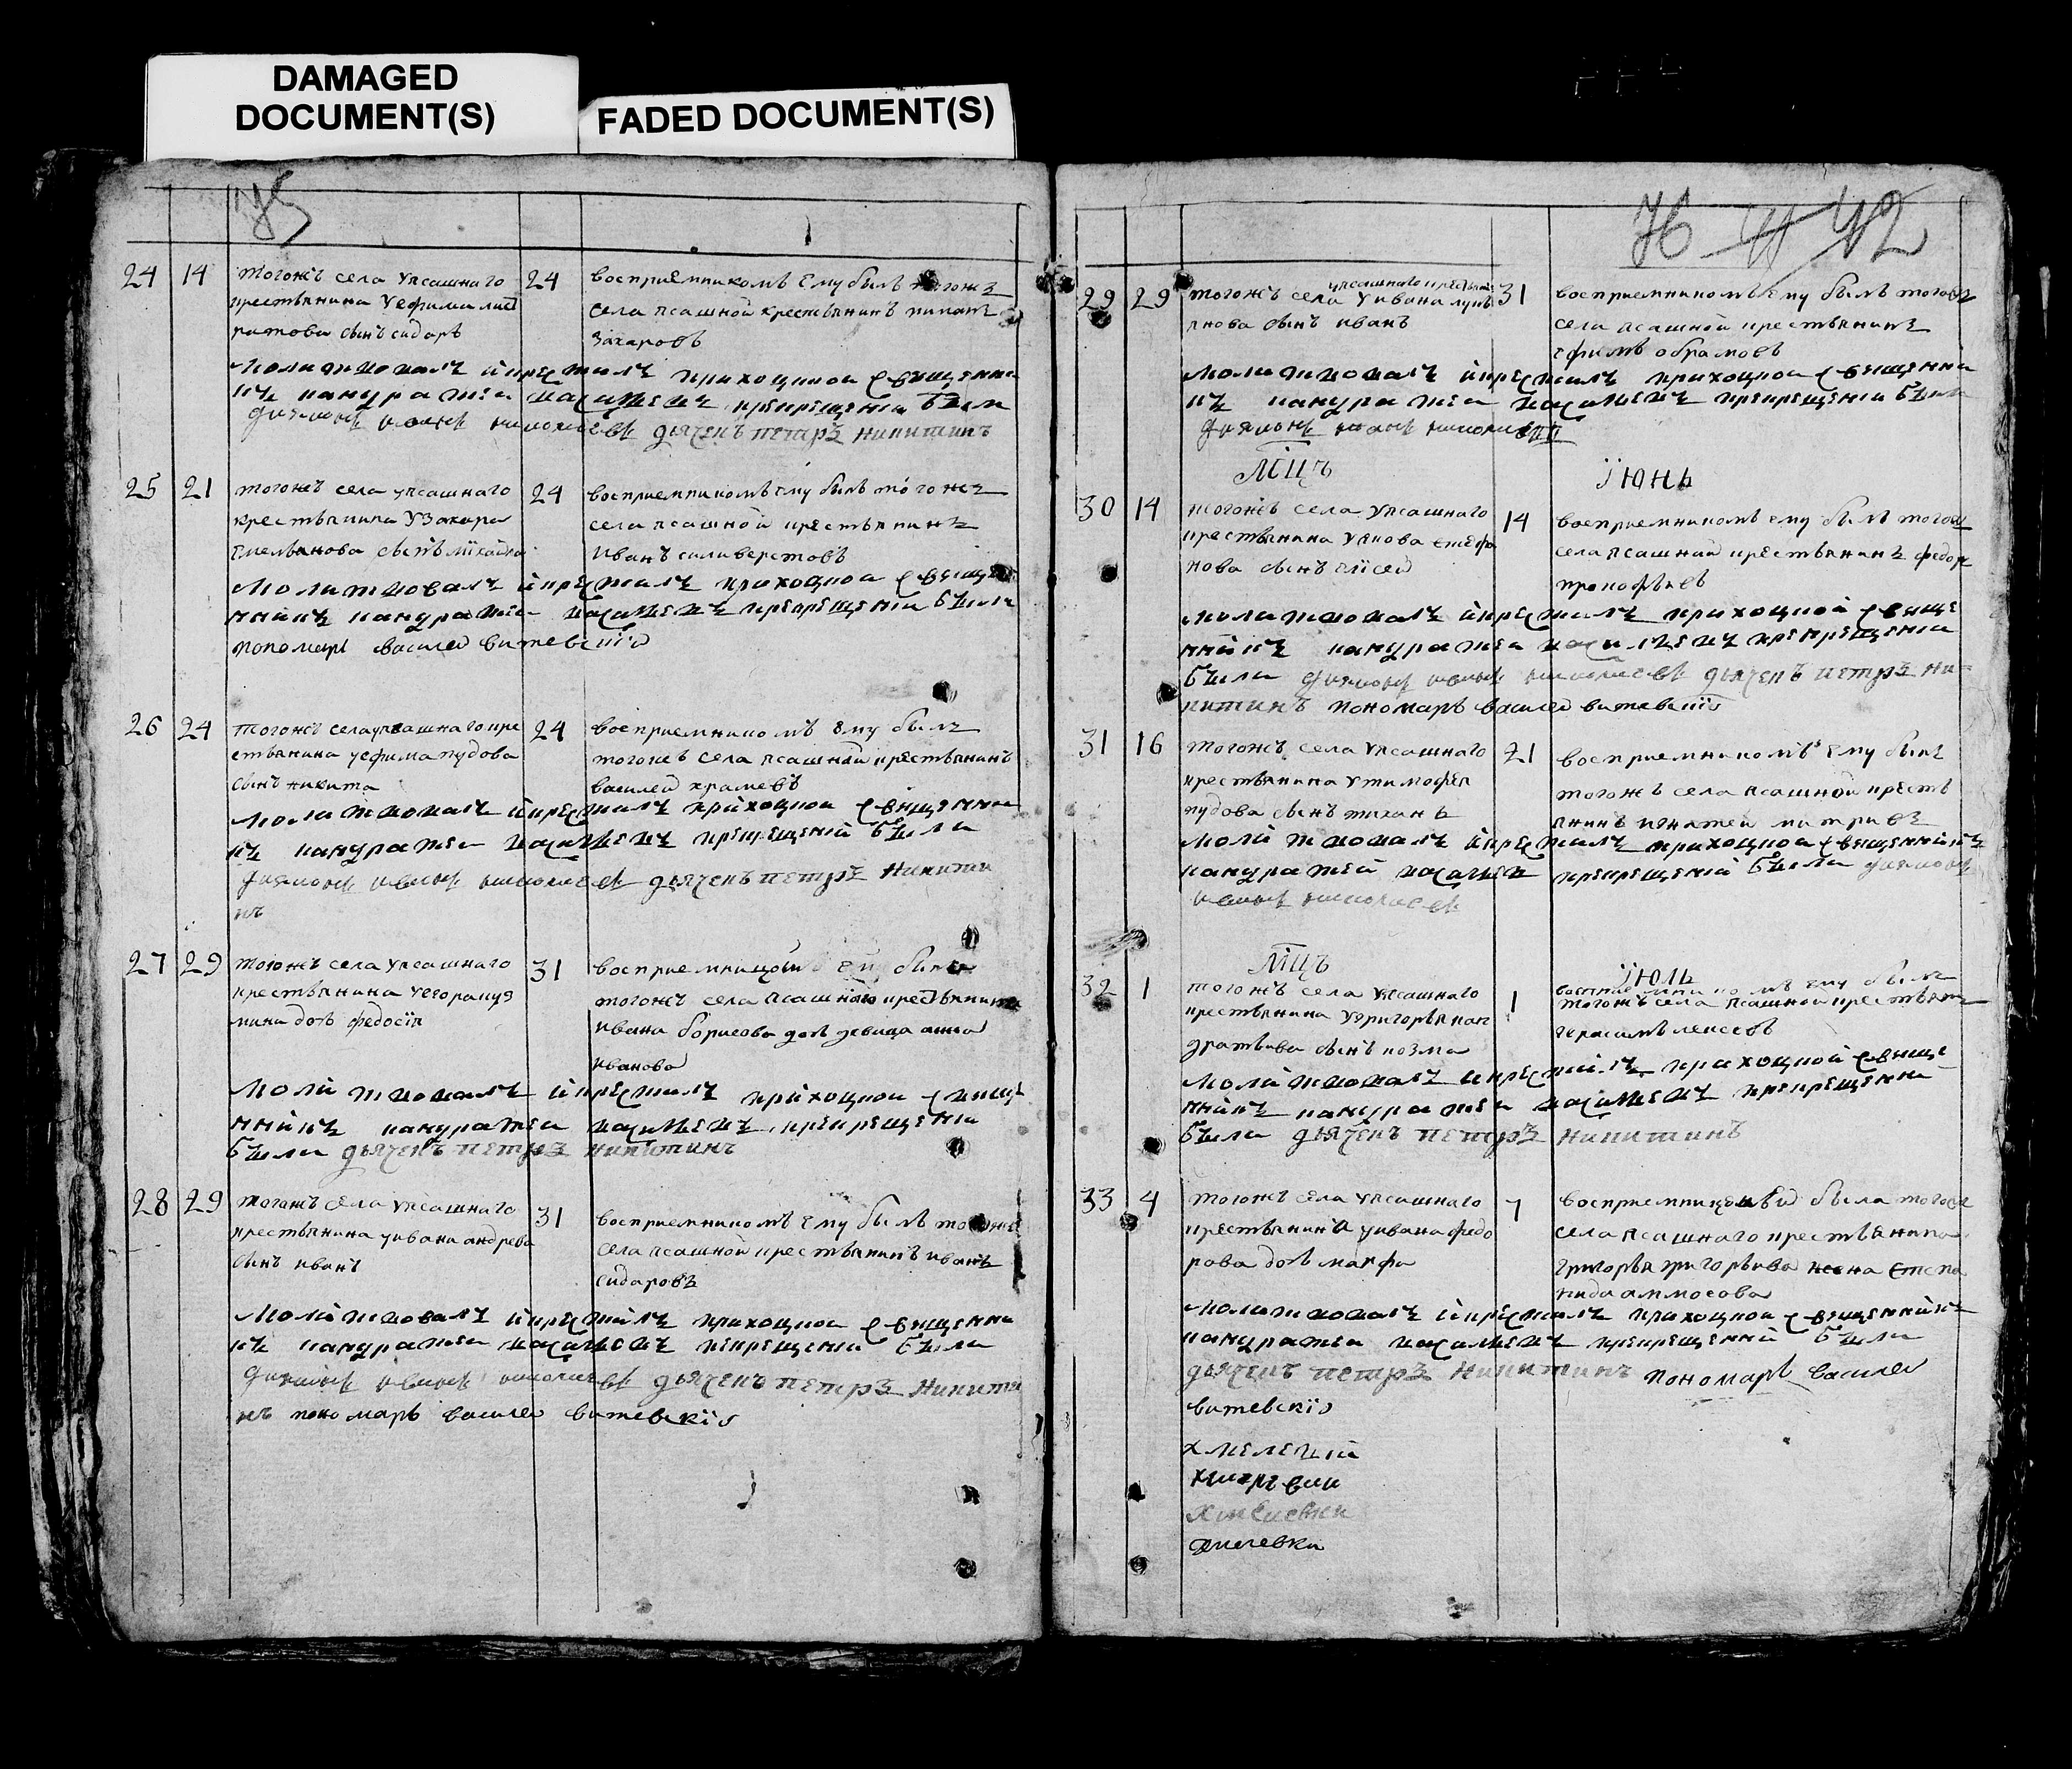 DAMAGED
DOCUMENT(S)
FADED DOCUMENT(S)
24 14 тогожъ села уясашнаго
крестьянина уефима
сынъ сидаръ
24 восприемникомъ ему былъ тогожъ
села ясашной крестьянинъ
захаровъ
молитвовалъ и крестилъ приходной священни
къ кандратей василиевъ при крещении были
диаконъ иванъ николаевъ дьячекъ петръ никитинъ
25 21 тогожъ села уясашнаго
крестьянина узахара
емельянова сынъ михайла
24 восприемникомъ ему былъ тогожъ
села ясашной крестьянинъ
иванъ силиверстовъ
молитвовалъ и крестилъ приходной свяще
нникъ кандратей василиевъ при крещении были
пономарь василей витевский
26 24 тогожъ села уясашнаго кре
стьянина уефима пудова
сынъ никита
24 восприемникомъ ему былъ
тогожъ села ясашной крестьянинъ
василей
молитвовалъ и крестилъ приходной священни
къ кандратей василиевъ при крещении были
диаконъ иванъ николаевъ дьячекъ петръ никити
нъ
27 29 тогожъ села уясашнаго
крестьянина уегора куз
мина дочь федосія
31 восприемницой ей была
тогожъ села ясашного крестьянина
ивана борисова дочь девица анна
иванова
молитвовалъ и крестилъ приходной свяще
нникъ кандратей василиевъ при крещении
были дьячекъ петръ никитинъ
28 29 тогожъ села уясашнаго
крестьянина уивана андрева
сынъ иванъ
31 восприемникомъ ему былъ тогожъ
села ясашной крестьянинъ иванъ
сидаровъ
молитвовалъ и крестилъ приходной священни
къ кандратей василиевъ при крещении были
диаконъ иванъ николаевъ дьячекъ петръ никити
нъ пономарь василей витевскій
42
29 29 тогожъ села уясашнаго крестьянина уивана
сынъ иванъ
31 восприемникомъ ему былъ тогожъ
села ясашной крестьянинъ
ефимъ обрамовъ
молитвовалъ и крестилъ приходной священни
къ кандратей василиевъ при крещении были
диаконъ иванъ николаевъ
мцъ июнь
30 14 тогожъ села уясашнаго
крестьянина уякова степа
нова сынъ елисей
14 восприемникомъ ему былъ тогожъ
села ясашной крестьянинъ федоръ
прокофьевъ
молитвовалъ и крестилъ приходной свяще
нникъ кандратей василиевъ при крещении
были диаконъ иванъ николаевъ дьячекъ петръ ни-
китинъ пономарь василей витевскій
31 16 тогожъ села уясашнаго
крестьянина утимофея
пудова сынъ тиханъ
21 восприемникомъ ему былъ
тогожъ села ясашной кресть
янинъ
молитвовалъ и крестилъ приходной священникъ
кандратей василиевъ при крещении были диаконъ
иванъ николаевъ
мцъ июль
32 1 тогожъ села уясашнаго
крестьянина угригорья кон
дратьива сынъ козма
1 восприемникомъ ему былъ
тогожъ села ясашной крестьянинъ
герасимъ
молитвовалъ и крестилъ приходной свяще
нникъ кандратей василиевъ при крещении
были дьячекъ петръ никитинъ
33 4 тогожъ села уясашнаго
крестьянина уивана федо
рова дочь марфа
7 восприемницей была тогожъ
села ясашнаго крестьянина
григорья григорьива жена степа
нида аммосова
молитвовалъ и крестилъ приходной священникъ
кандратей василиевъ при крещении были
дьячекъ петръ никитинъ пономарь василей
витевскій